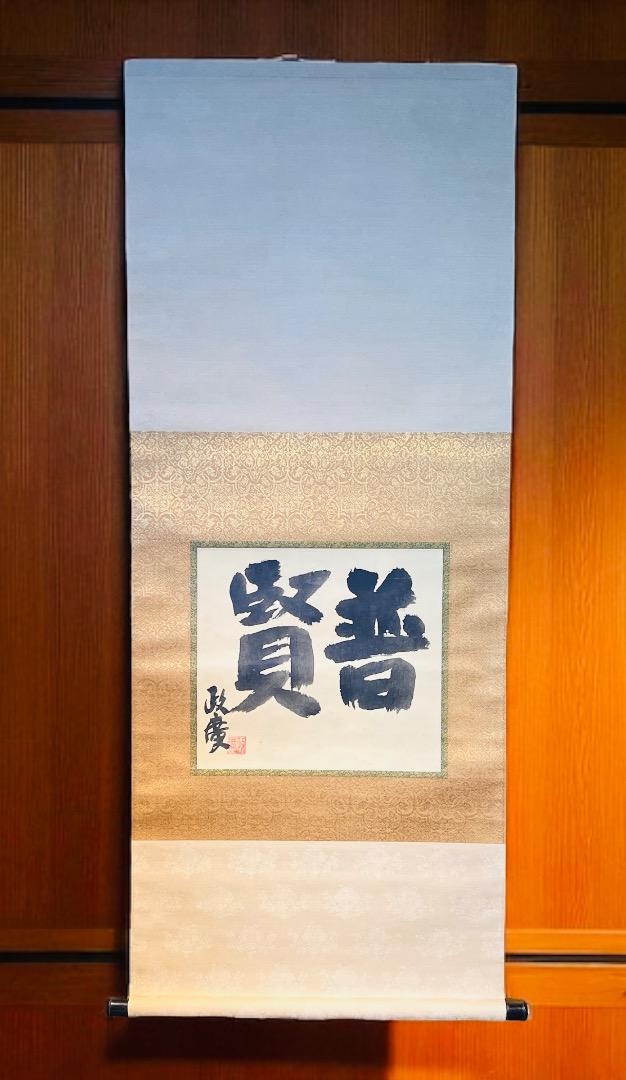 普賢
政慶